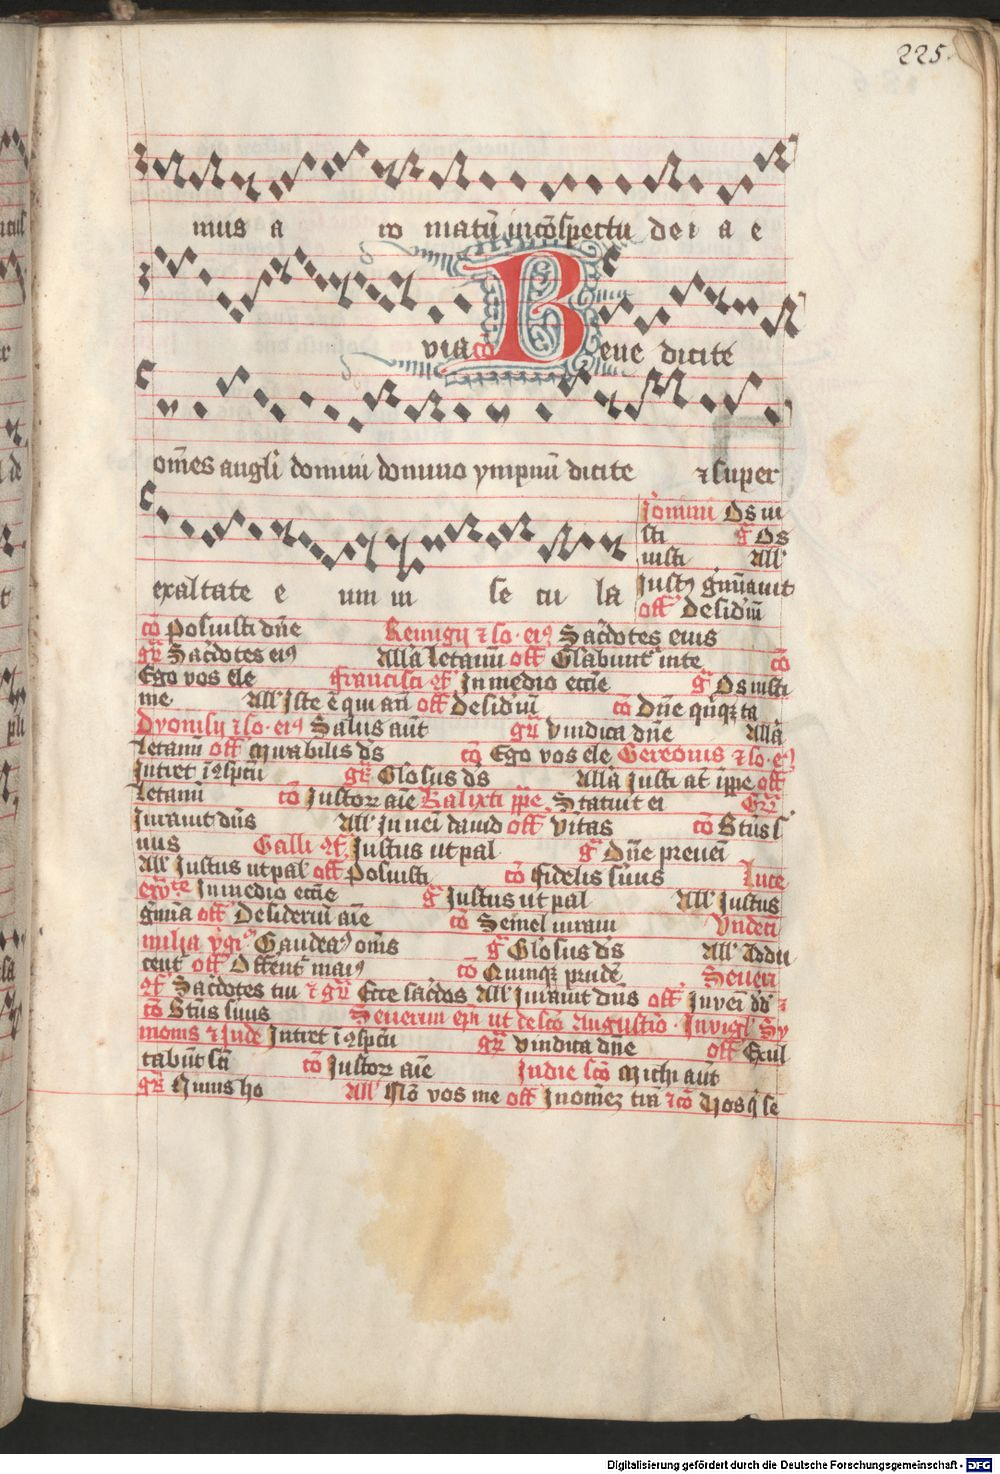 225.
mus a ro matū incōspectu dei a e
via cō Bene dicite
om̄es angli domini domino ympnū dicite ⁊ super
exaltate e um in se cu la
Jeronimi Os iu
sti gͬ Os
iusti All'
Just9 gmīauit
off' Desid'iū
cō Posuisti dn̄e Remigij ⁊ so. ei9 Sac̄dotes eius
gr̄ Sac̄dotes ei9 Allā Letamī off' Glabunt inte cō
Ego vos ele francisci ɔf' In medio ecc̄ie gͬ Os iusti
me All' Iste ē qui an̄ off' Desid'iū cō Dn̄e quīqꝫ ta
Dyonisij ⁊ so. ei9 Salus aūt gr̄ Vindica dn̄e Allā
Letamī off' Mirabilis ds̄ cō Ego vos ele Gereonis ⁊ so. ei9
Intret ī ɔspc̄tū gr̄ Glosus ds̄ Allā Justi at ippe off'
Letamī cō Justoꝝ aīe Kalixti ppe. Statuit ei Gr̄
Jurauit dn̄s All' Inueī dauid off' Vītas cō Btūs s
uus Galli ɔf. Justus ut pal gͬ Dn̄e preueī
All' Justus ut pal off' Posuisti cō fidelis suus Luce
ewᵗᵉ In medio ecc̄ie gͬ Justus ut pal All' Justus
gmīa off' Desideriū aīe cō Semel iuraui Vndeci
milia v̄gi Gaudeaꝰ om̄s gͬ Glosus ds̄ All' Addu
cent' off' Offent' mai9 cō Quinqꝫ prudē Seueri
ɔf' Sac̄dotes tui ⁊ gr̄ Ecce sac̄dos All' Jurauit dn̄s off' Inueī dd̄ ⁊
cō Btūs suus Seuerini ep̄i ut de scō Augustino. In vigl' Sy
monis ⁊ Jude Intret ī ɔspc̄tū gr̄ Vindica dn̄e off' Exul
tabūt sc̄i cō Justoꝝ aīe In die scō Michi aūt
gr̄ Nimis ho All' Nō vos me off' In om̄eꝫ tr̄a ⁊ cō Vos q̄ se
Digitalisierung gefördert durch die Deutsche Forschungsgemeinschaft - DFG